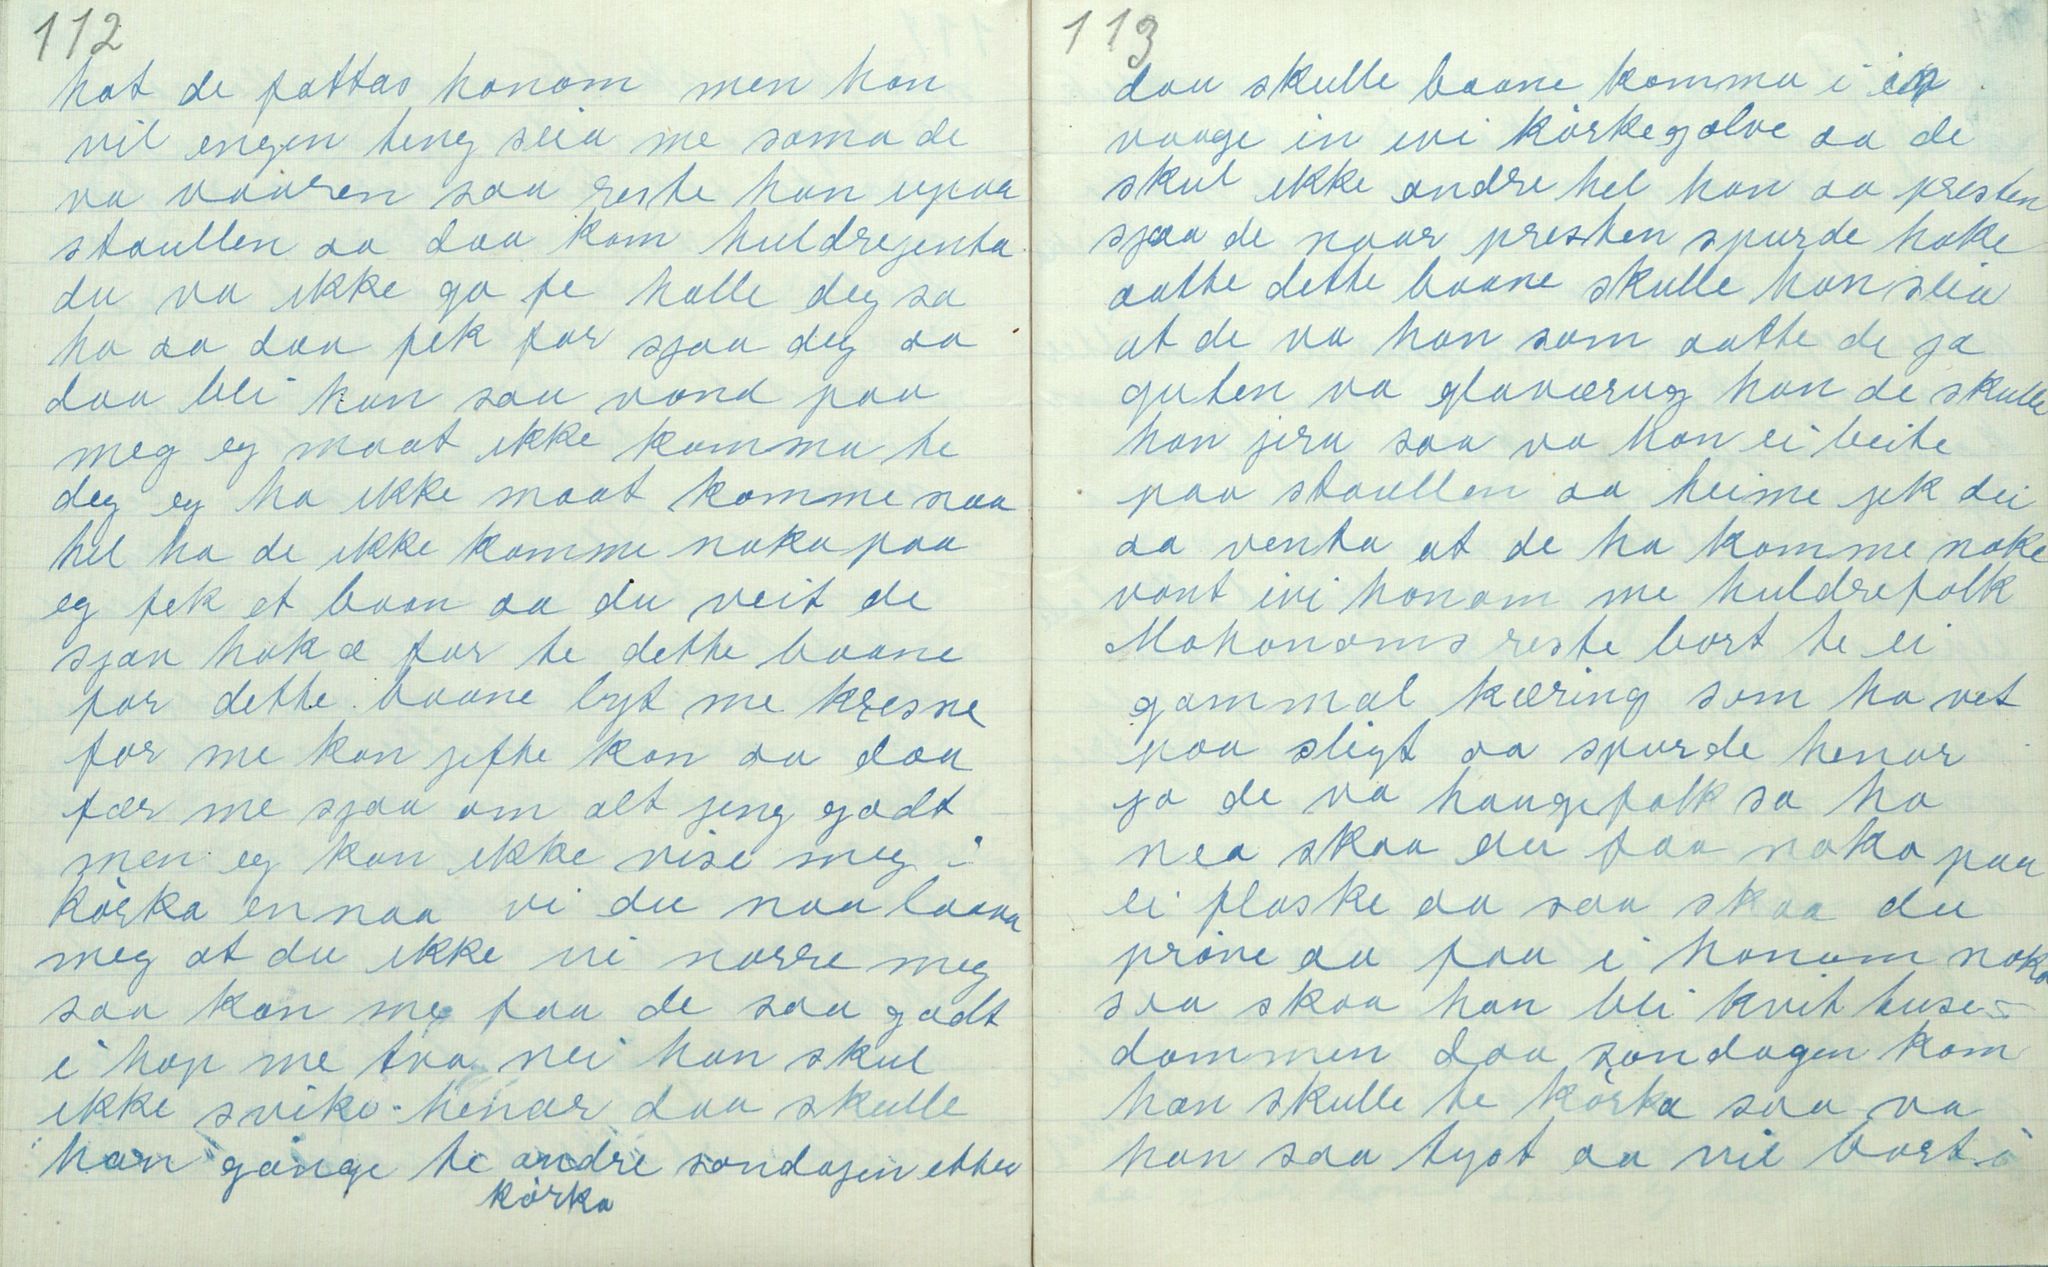 112
hat de fattas honom men han
vil engen teng seia me soma de
va vaaren saa reste han upaa
staullen aa daa kom huldrejenta
du va ikke go fe halle deg sa
ho aa daa fek far sjaa deg aa
daa blei han saa vond paa
meg eg maat ikke komma te
deg eg ha ikke maat komme naa
hel ha de ikke komme noka paa
eg fek et baan aa du veit de
sjaa hoke far te dette baane
for dette baane lyt me kresne
for me kan jefte kon aa daa
fær me sjaa om alt jeng godt
men eg kan ikke vise meg i
kòrka ennaa vi du naa laava
meg at du ikke vi narre meg
saa kan me faa de saa godt
i hop me tvo nei han skul
ikke svike henar daa skulle
han gange te andre sondagen etter
kòrka
113
daa skulle baane komma i ei
vaage in ivi kòrkegolve aa de
skul ikke andre hel han aa presten
sjaa de naar presten spurde hoke
aatte dette baane skulle han seia
at de va han som aatte de ja
guten va glaværug han de skulle
han jera saa va han ei beite
paa staullen aa heime jek dei
aa venta at de ha komme noke
vont ivi honom me huldrefolk
Mohonoms reste bort te ei
gammal kæring som ho vet
paa sligt aa spurde henar
jo de va haugefolk sa ho
nea skaa du faa noko paa
ei flaske aa saa skaa du
pròve aa faa i honom noko
saa skaa han bli kvit tuse-
dommen daa sondagen kom
han skulle te kòrka saa va
han saa tyst aa vil bort i